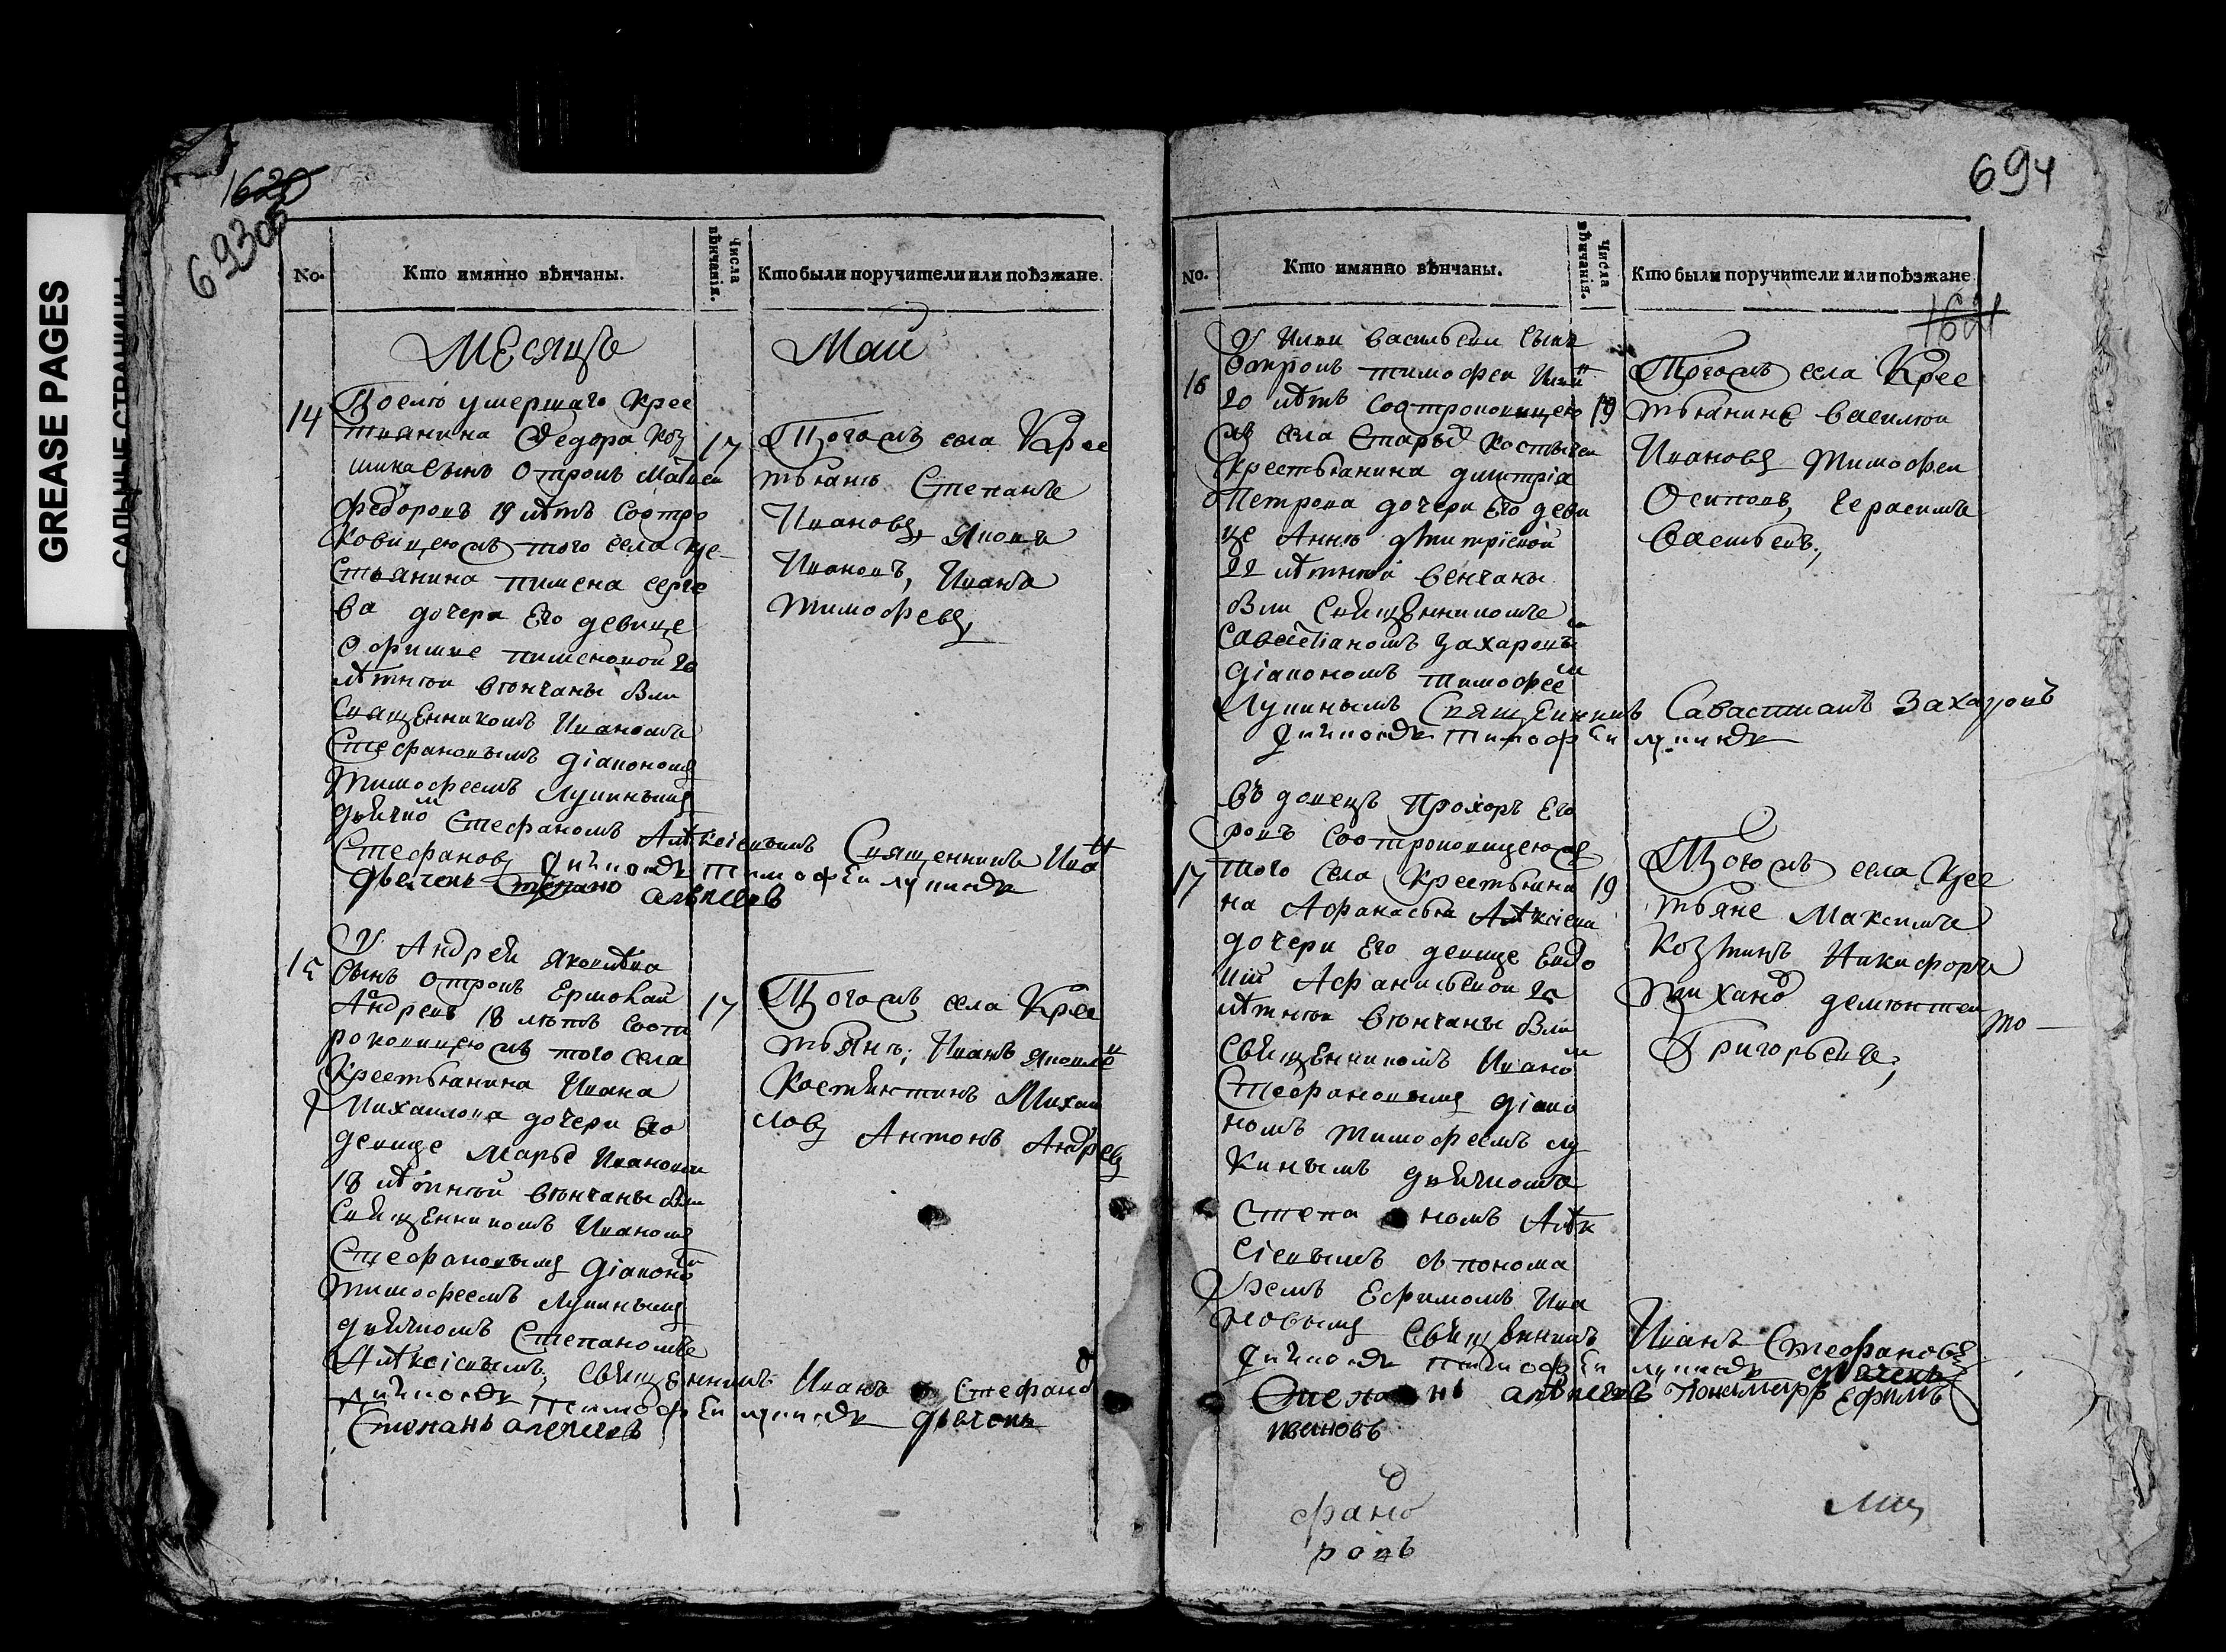 GREASE PAGES
САЛЬНЫЕ СТРАНИЦЫ
1620
693об
No.
Кто имянно вѣнчаны.
Числа вѣнчанія.
Кто были поручители или поѣзжане.
Месяцъ
Маи
14
После умершаго крес
тиянина Федора Коз
мина сынъ отрокъ Матвеи
Федоровъ 19 летъ со отро
ковицею изъ того села кре
стьянина Пимена Серге
ва дочери его девице
Офимие Пименовой 20
летнеи венчаны были
священникомъ Иваномъ
Стефановымъ диакономъ
Тимофеемъ Лукинымъ
дьячко Стефаномъ Алексiевымъ
17
Тогожъ села крес
тьяне Степанъ
Ивановъ, Яковъ
Ивановъ, Иванъ
Тимофевъ
Священникъ Иван
Стефановъ дияконъ Тимофеи Лукинъ
дьячекъ Степано алексеевъ
15
У Андрея Яковлева
сынъ отрокъ Ермолаи
Андреевъ 18 летъ со от
роковицею изъ того села
крестьянина Ивана
Михаилова дочери его
девице Марье Ивановои
18 летнеи венчаны были
священникомъ Иваномъ
Стефановымъ диаконо
Тимофеемъ Лукинымъ
дьячкомъ Степаномъ
Алексiевымъ,
17
Тогожъ села крес
тьяне; Иванъ Яковле
Костянтинъ Михаи
ловъ Антонъ Андревъ
священникъ Иванъ Стефано
дияконъ Тимофеи Лукинъ дьячекъ
Степанъ алексеевъ
694
1621
No.
Кто имянно вѣнчаны.
Числа вѣнчанія.
Кто были поручители или поѣзжане.
16
У Ильи Васильева сынъ
отрокъ Тимофеи Ильи
20 летъ со отроковицею
изъ села Стары Костычеи
крестьянина Димитрiа
Петрова дочери его деви
це Анне Дмитрiевои
22 летнеи венчаны
были священникомъ
Савастiаномъ Захаровы
дiакономъ Тимофеем
Лукинымъ
19
Тогожъ села крес
тьянине Василеи
Ивановъ Тимофеи
Осиповъ, Герасимъ
Васильевъ;
Священникъ Савастианъ Захаровъ
дияконъ Тимофеи Лукинъ
17
вдовецъ Прохоръ Его
ровъ со отроковицею изъ
того села крестьяни
на Афанасья Алексiева
дочери его девице Евдо
ки Афанасьевои 20
летнеи венчаны были
священникомъ Ивано
Стефановымъ дiако
номъ Тимофеемъ Лу
кинымъ дьячкомъ
Степаномъ Алек
сiевымъ понома
ремъ Ефимомъ Ива
новымъ
19
Тогожъ села крес
тьяне Максимъ
Козминъ Никифоръ
Тихано Дементеи
Григорьевъ;
священникъ Иванъ Стефановъ
дияконъ Тимофеи Лукинъ дьячекъ
Степанъ алексеевъ пономарь Ефимъ
ивановъ
фано
ровъ